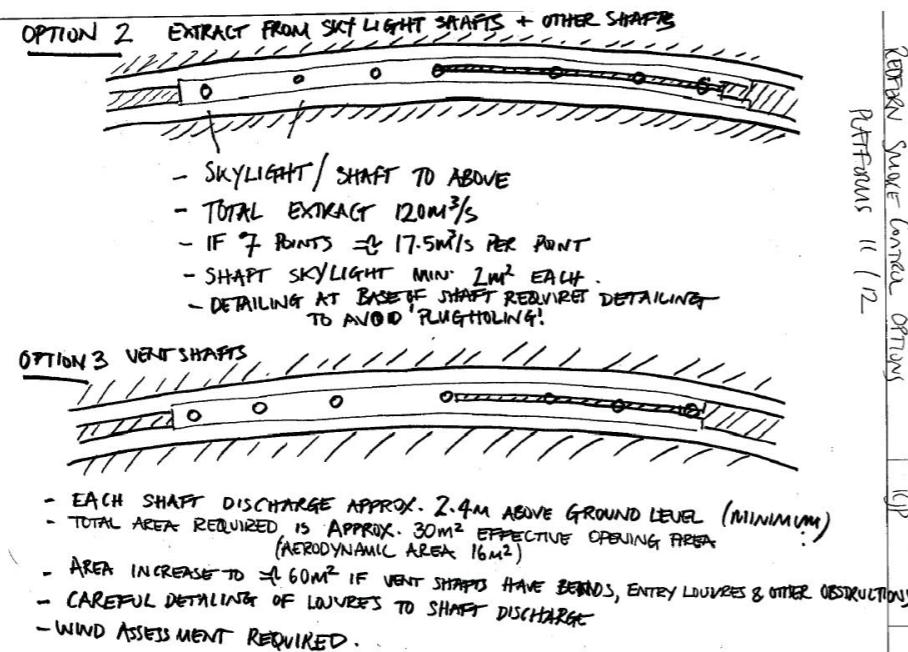 OPTION 2 EXTRACT FROM SKYLIGHT SHAFTS + OTHER SHAFTS
- SKYLIGHT / SHAFT TO ABOVE
- TOTAL EXTRACT 120M³/S
- IF 7 POINTS ≏ 17.5M³/S PER POINT
- SHAFT SKYLIGHT MIN. 2M² EACH.
- DETAILING AT BASE OF SHAFT REQUIRES DETAILING
TO AVOID 'PLUGHOLING!
OPTION 3 VENT SHAFTS
- EACH SHAFT DISCHARGE APPROX. 2.4M ABOVE GROUND LEVEL (MINIMUM)
- TOTAL AREA REQUIRED IS APPROX. 30M² EFFECTIVE OPENING AREA
(AERODYNAMIC AREA 16M²)
- AREA INCREASE TO ≏ 60M² IF VENT SHAFTS HAVE BENDS, ENTRY LOUVRES & OTHER OBSTRUCTIONS
- CAREFUL DETALING OF LOUVRES TO SHAFT DISCHARGE
- WIND ASSESSMENT REQUIRED.
REDFERN SMOKE CONTROL OPTIONS
PLATFORMS 11/12